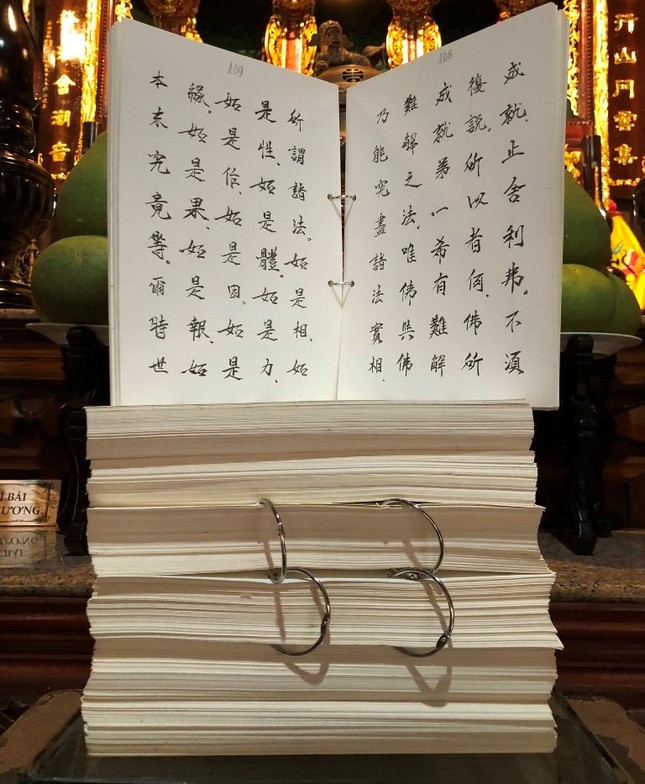 108
成就、止舍利弗。不須
復說。所以者何、佛所
成就第一希有難解
難解之法、唯佛與佛
乃能究盡諸法實相、
109
所謂諸法。如是相、如
是性、如是體、如是力、
如是作、如是因、如是
緣、如是果、如是報、如
本末究竟等。爾時世
BÁI
ƯƠNG